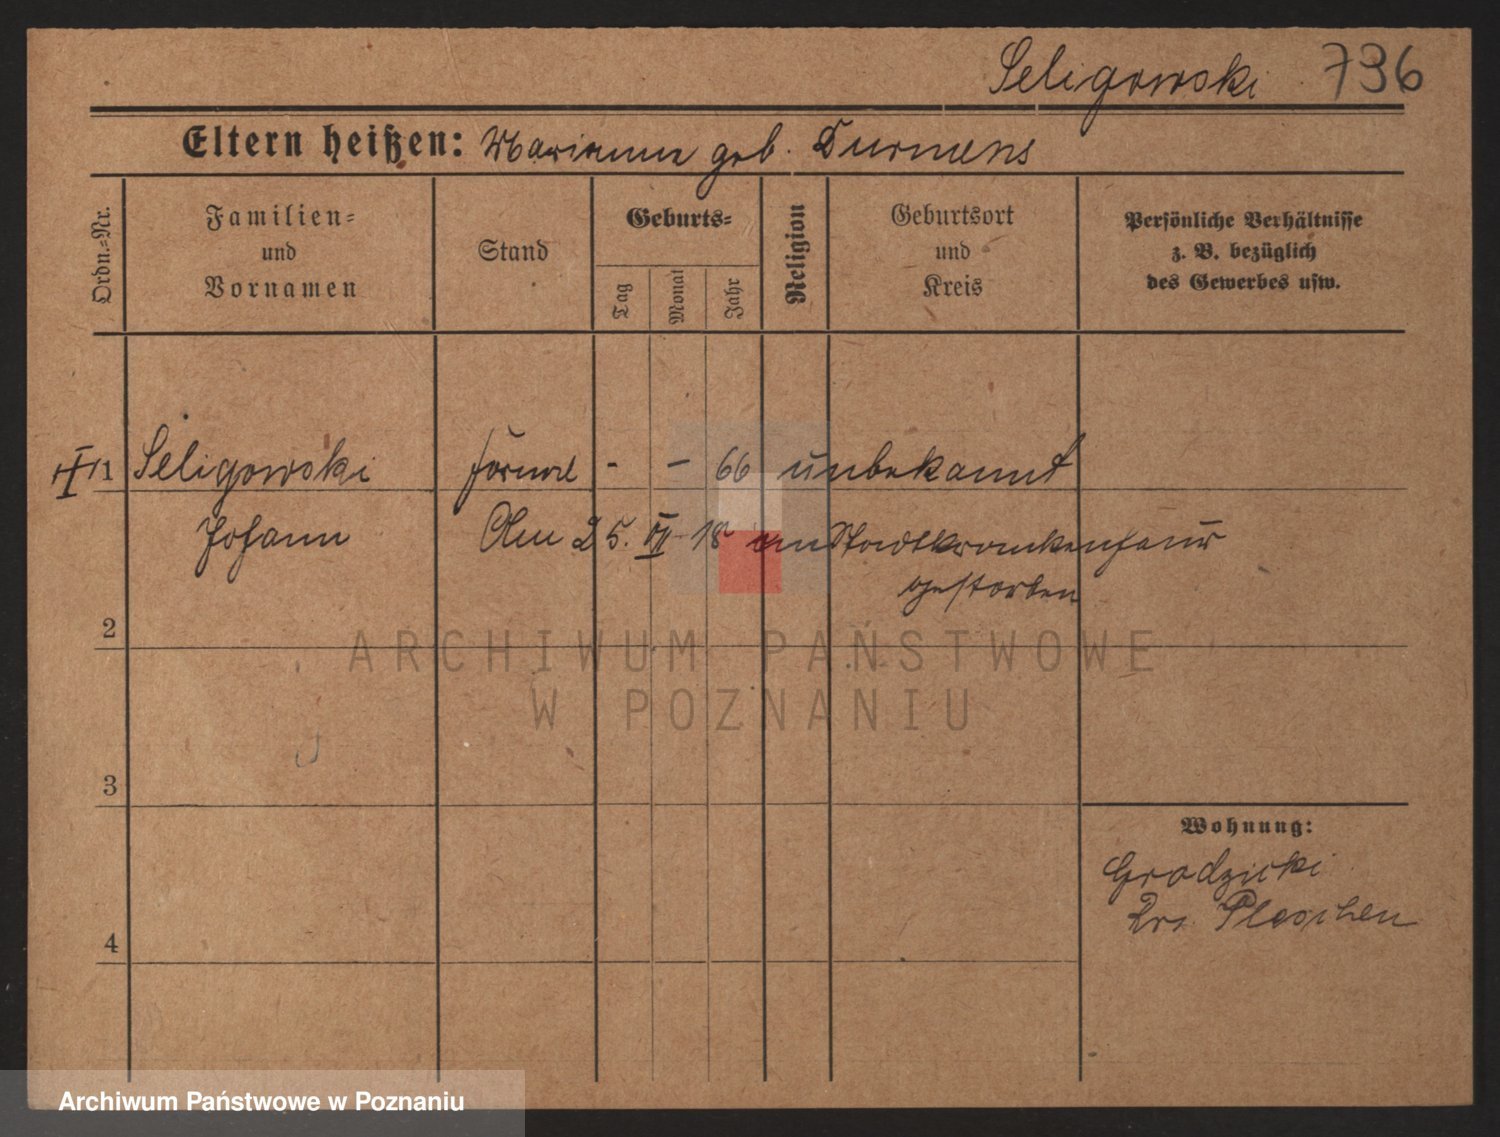 Seligowski 736
Eltern heißen: Marianna geb. Durniens
Ordn.=Nr.
Familien=
und
Vornamen
Stand
Geburts=
Tag
Monat
Jahr
Religion
Geburtsort
und
Kreis
Persönliche Verhältnisse
z. B. bezüglich
des Gewerbes usw.
1 Seligowski - - 66 unbekannt
Johann Am 25. 18 im Stadtkrankenhaus
gestorben
2
3
4
Wohnung:
Grodzicki
Krs. Pleschen
ARCHIWUM PAŃSTWOWE
W POZNANIU
Archiwum Państwowe w Poznaniu